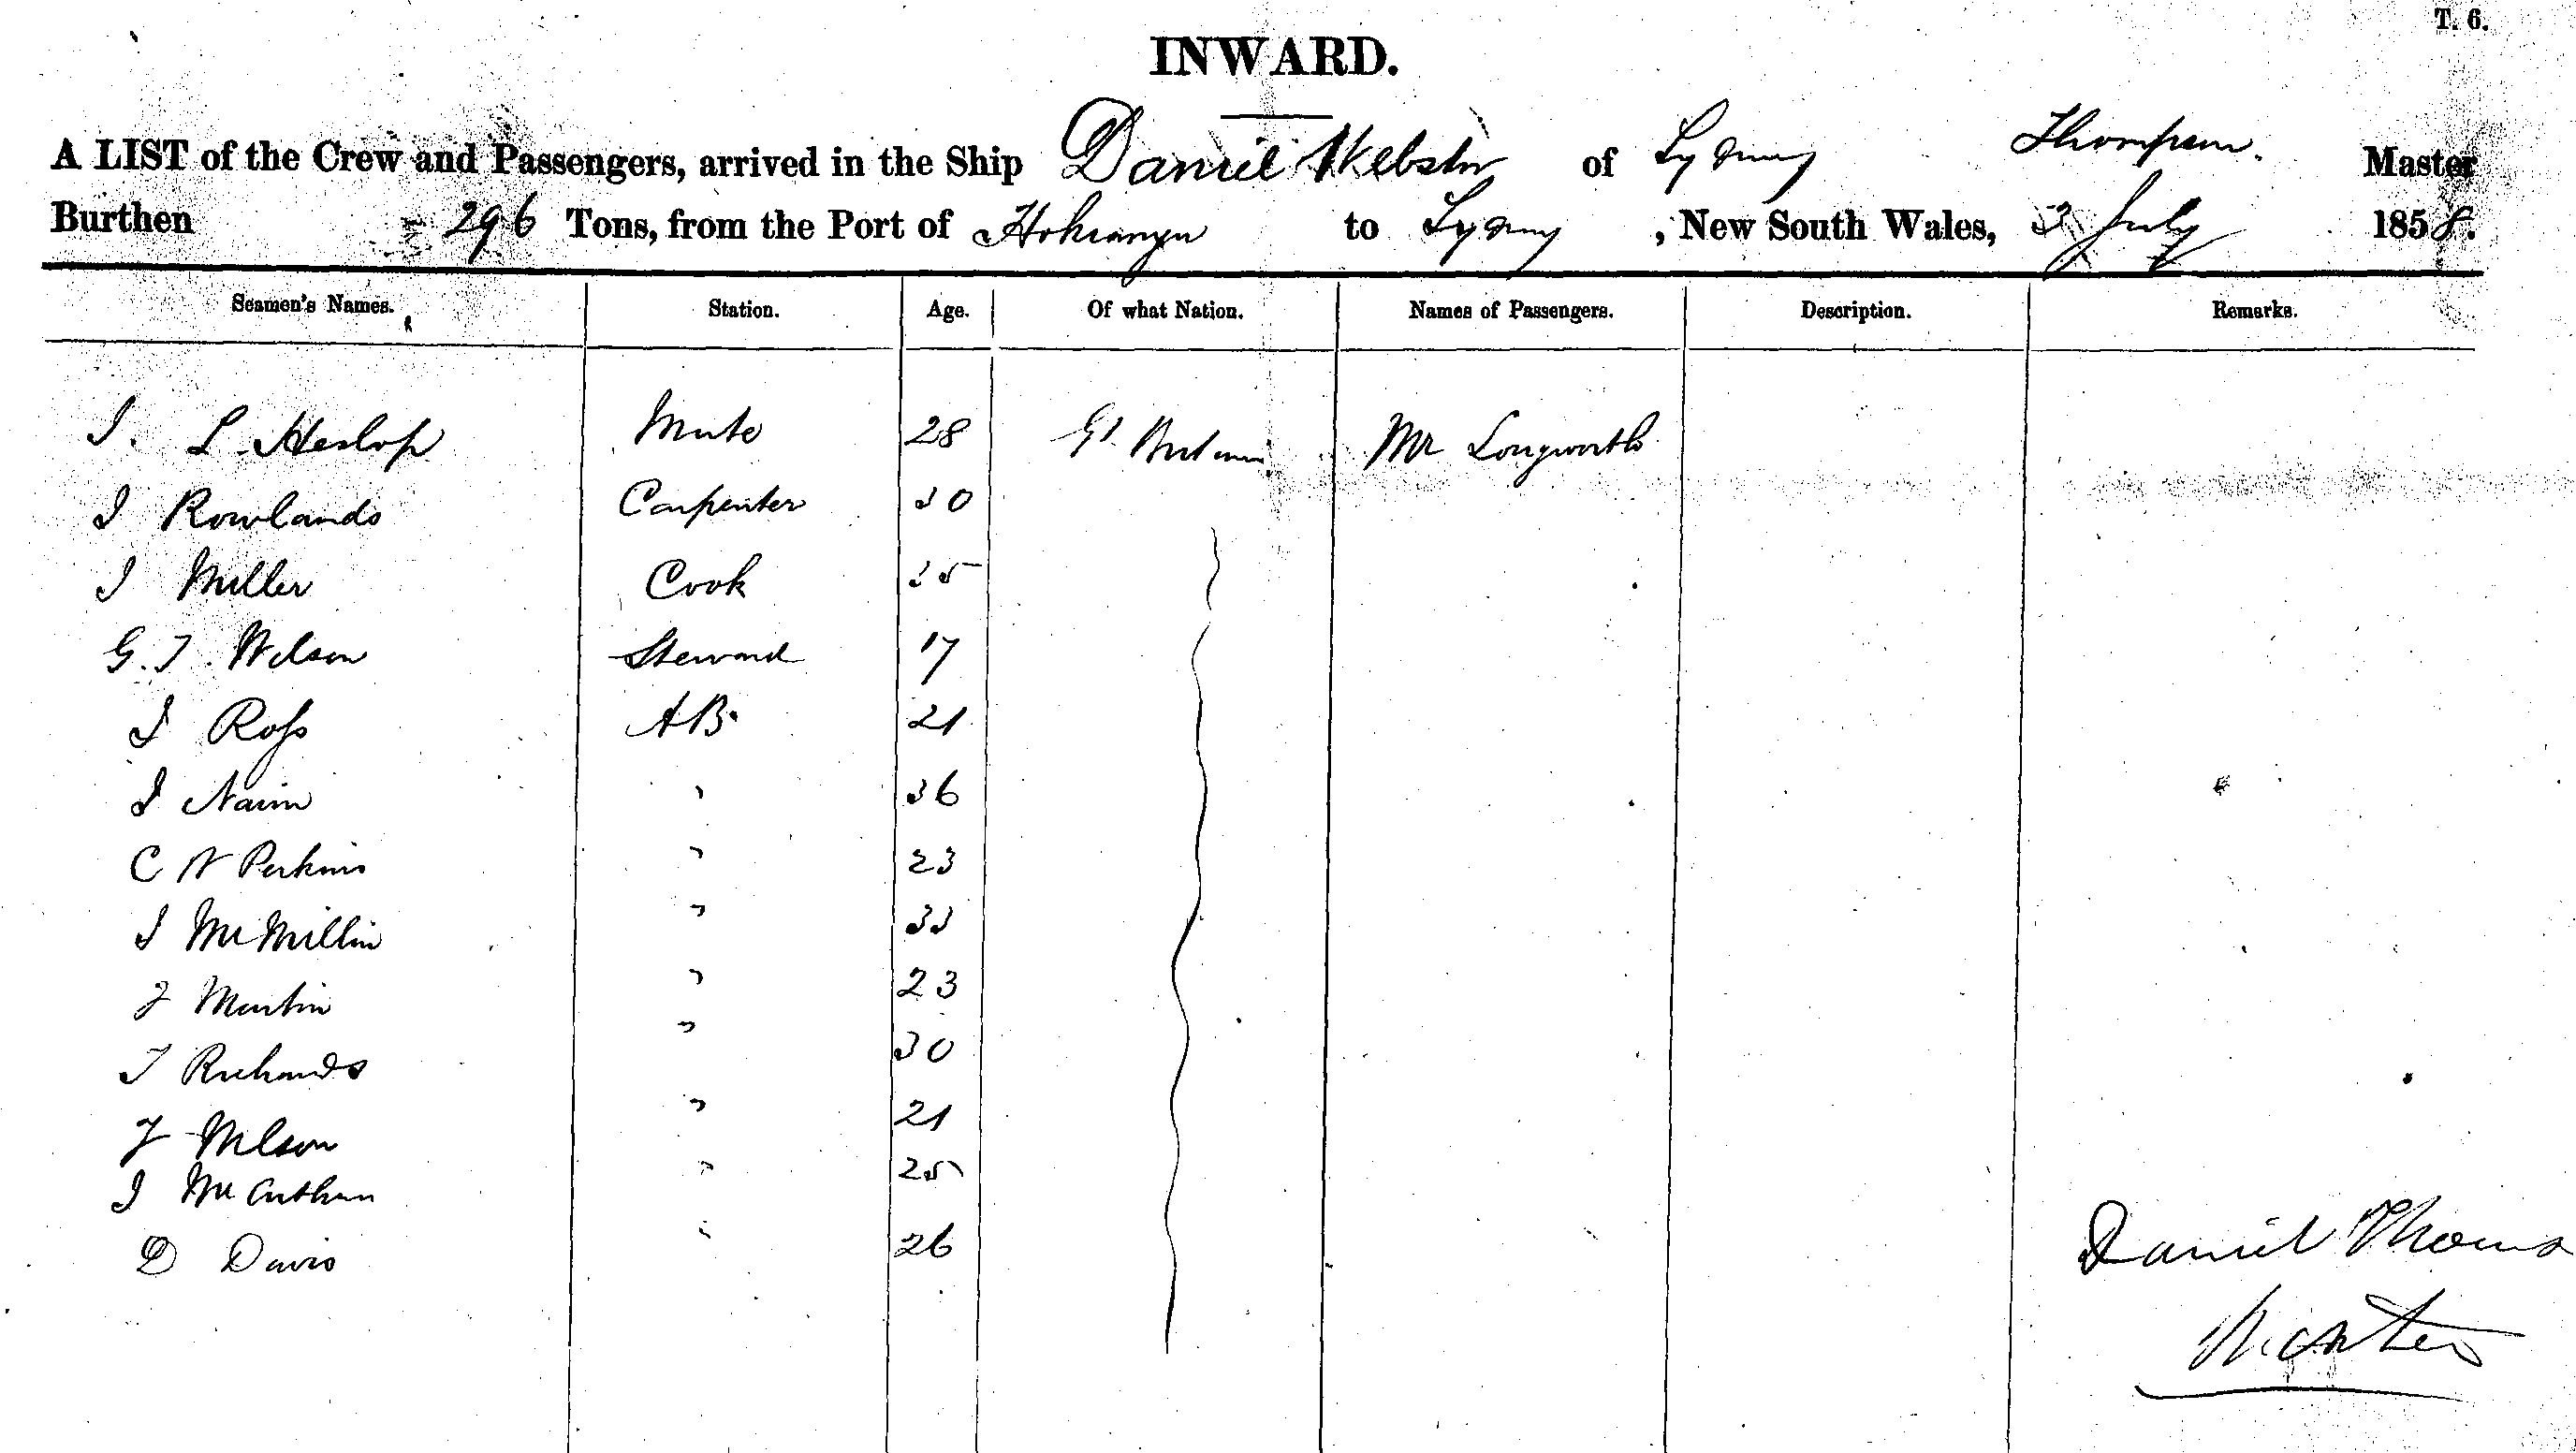 T. 6.
INWARD.
A LIST of the Crew and Passengers, arrived in the Ship Daniel Webster of Sydney Thompson. Master
Burthen 296 Tons, from the Port of Hokianga to Sydney, New South Wales, 3 July 1858.
Seamen's Names. Station. Age. Of what Nation. Names of Passengers. Description. Remarks.
J. L. Heslop Mate 28 Gt. Britain Mr Longworth
J Rowlands Carpenter 30
J Miller Cook 35
G. J. Wilson Steward 17
J Ross AB. 21
J Nairn " 36
C W Perkins " 23
J McMillin " 33
J Martin " 23
T Richards " 30
J Wilson " 21
J McArthur " 25
D Davis " 26
Daniel Thoms
Master